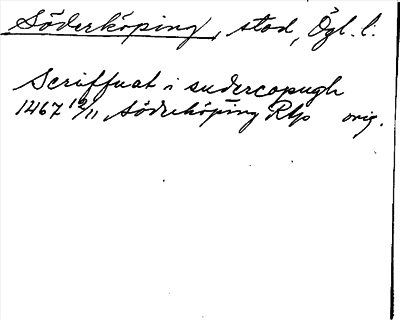 Söderköping, stad, Ögl. l.
Scriffuat i sudercopugh
1467 19/11 Söderköping Rtp orig.